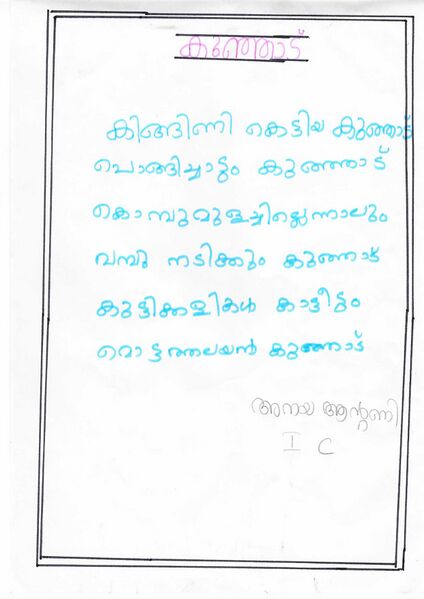 കുഞ്ഞാട്
കിങ്ങിണി കെട്ടിയ കുഞ്ഞാട്
പൊങ്ങിച്ചാട്ടും കുഞ്ഞാട്
കൊമ്പുമുളച്ചില്ലെന്നാലും
വമ്പു നടിക്കും കുഞ്ഞാട്
കുട്ടിക്കളികൾ കാട്ടീട്ടും
മൊട്ടത്തലയൻ കുഞ്ഞാട്
അനയ ആന്റണി
I C